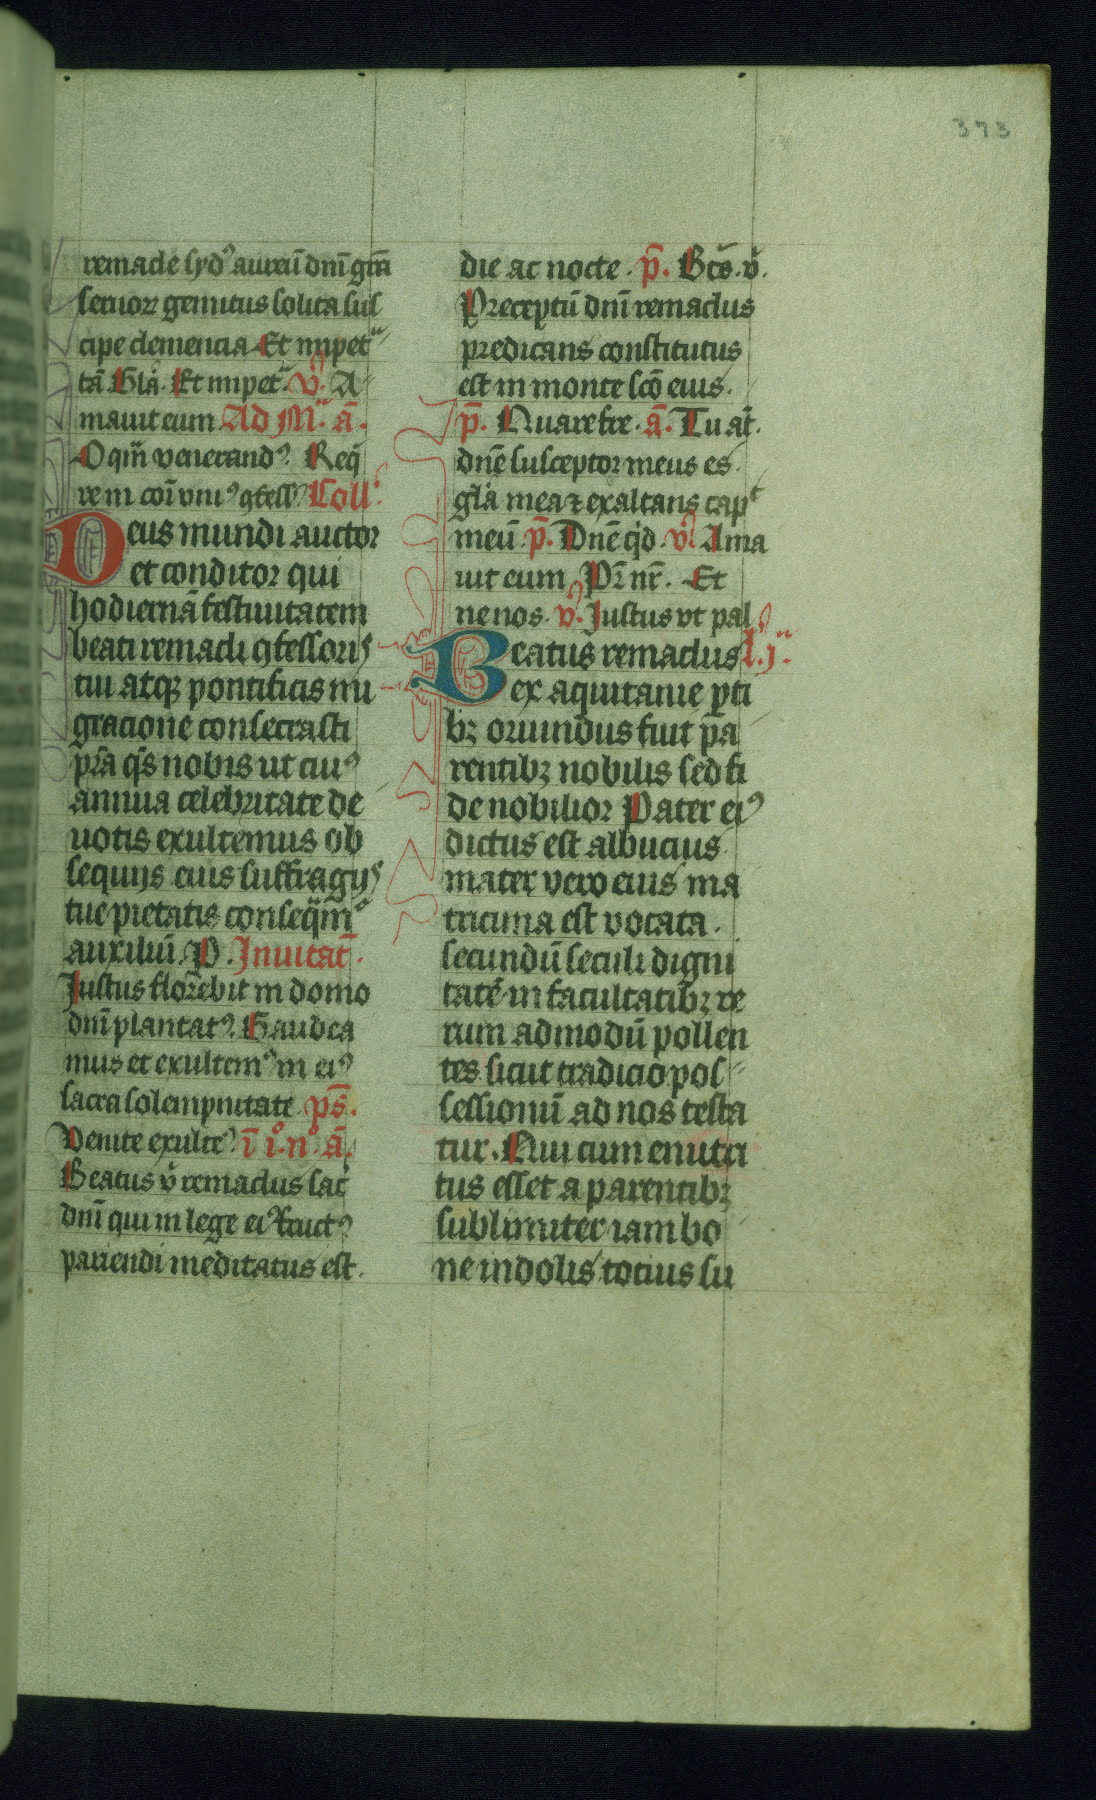 373
remacle syd⁹ aureū dn̄i grā
seruoꝝ gemitus solita sus
cipe clemencia Et impet
tā Glā. Et impet. v̊. A
mauit eum Ad M. ā.
O qm̄ venerand⁹. Req̄
re in cōi vni⁹ ꝯfess Coll
Deus mundi auctor
et conditor qui
hodiernā festiuitatem
beati remacli ꝯfessoris
tui atqꝫ pontificis mi
gracione consecrasti
pr̄a qs̄ nobis ut eiu⁹
annua celebritate de
uotis exultemus ob
sequijs eius suffragijs
tue pietatis conseq̄m
auxiliū. P. Inuitat̄.
Justus florebit in domo
dn̄i plantat⁹. Gaudea
mus et exultem⁹ in ei⁹
sacra solempnitate ps̄.
Venite exulte⁹. ī i.⁰ n.⁰ ā.
Beatus v̊ remaclus sac̄
dn̄i qui in lege ei⁹ fruct⁹
pariendi meditatus est.
die ac nocte. p̄. Bt̄s. v̊.
Preceptū dn̄i remaclus
predicans constitutus
est in monte sc̄o eius.
p̄. Quare fre. ā. Tu at̄.
dn̄e susceptor meus es
glā mea ⁊ exaltans capᵗ
meū. p̄. Dn̄e qd. v̊ Ama
uit eum Pr̄ nr̄. Et
ne nos. v̊. Justus vt pal
Beatus remaclus L. j.
ex aquitanie ꝑti
bꝫ oriundus fuit pa
rentibꝫ nobilis sed fi
de nobilior Pater ei⁹
dictus est albucius
mater vero eius ma
tricina est vocata.
secundū seculi digni
tatē in facultatibꝫ re
rum admodū pollen
tes sicut tradicio pos
sessionū ad nos testa
tur. Qui cum enutri
tus esset a parentibꝫ
sublimiter iam bo
ne indolis totius su